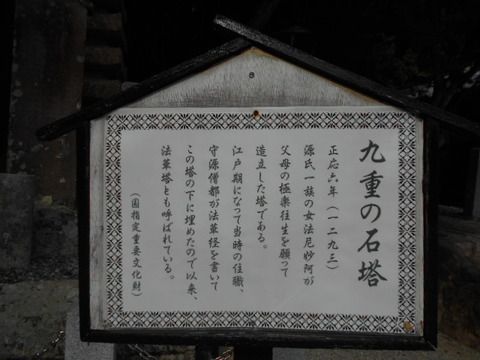 九重の石塔
正応六年（一二九三）
源氏一族の女法尼妙阿が
父母の極楽往生を願って
造立した塔である。
江戸期になって当時の住職、
守源僧都が法華経を書いて
この塔の下に埋めたので以来、
法華塔とも呼ばれている。
（国指定重要文化財）